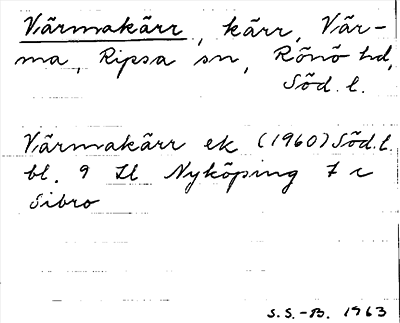 Värmakärr, kärr, Vär-
ma, Ripsa sn, Rönö hd,
Söd. l.
Värmakärr ek (1960) Söd. l.
bl. 9 Nyköping 7 c
Sibro
S.S.-B. 1963